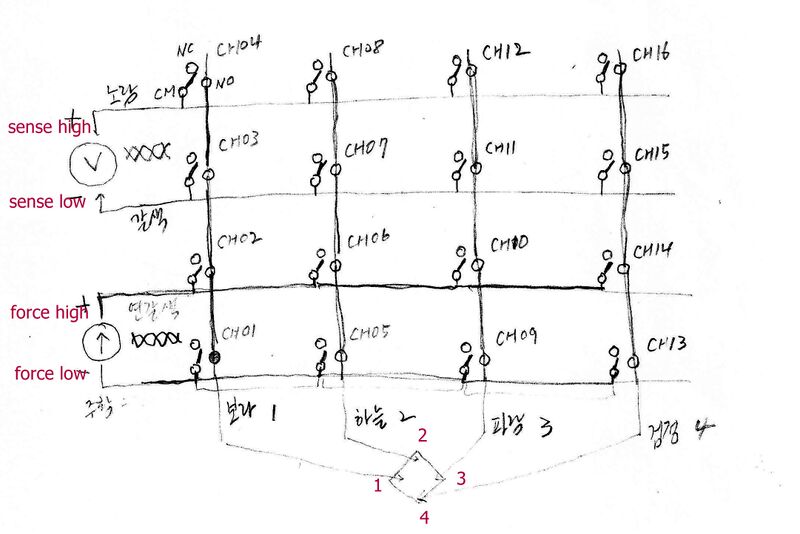 NC CH04 CH08 CH12 CH16
노랑 CM NO
+
sense high
V CH03 CH07 CH11 CH15
sense low
갈색
CH02 CH06 CH10 CH14
+ 연갈색
force high
CH01 CH05 CH09 CH13
force low
주황
보라 1 하늘 2 파랑 3 검정 4
2
1 3
4